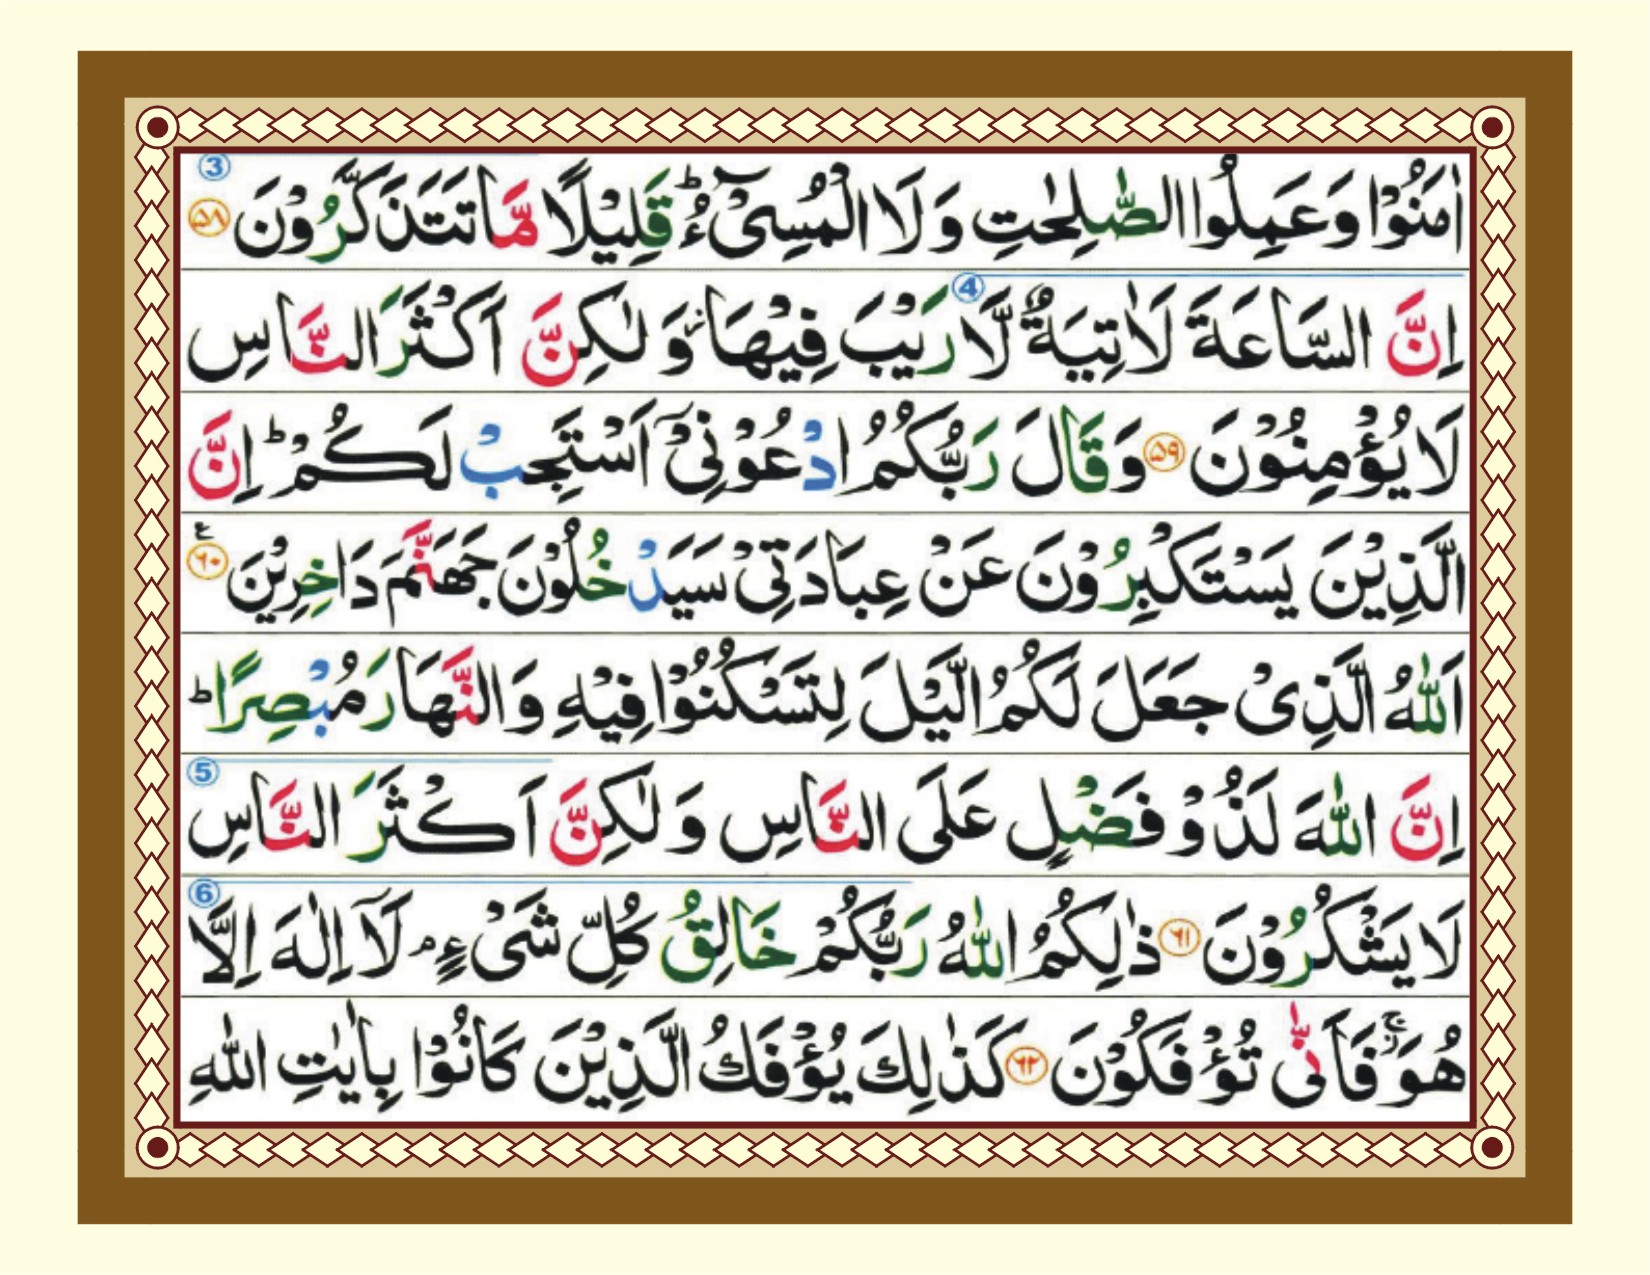 ③
اٰمَنُوْا وَعَمِلُوا الصّٰلِحٰتِ وَ لَا الْمُسِیْٓءُ ؕ قَلِیْلًا مَّا تَتَذَكَّرُوْنَ ۵۸
④
اِنَّ السَّاعَةَ لَاٰتِیَةٌ لَّا رَیْبَ فِیْهَا ؗ وَ لٰكِنَّ اَكْثَرَ النَّاسِ
لَا یُؤْمِنُوْنَ ۵۹ وَقَالَ رَبُّكُمُ ادْعُوْنِیْۤ اَسْتَجِبْ لَكُمْ ؕ اِنَّ
الَّذِیْنَ یَسْتَكْبِرُوْنَ عَنْ عِبَادَتِیْ سَیَدْخُلُوْنَ جَهَنَّمَ دَاخِرِیْنَ ۶۰ ع
اَللّٰهُ الَّذِیْ جَعَلَ لَكُمُ الَّیْلَ لِتَسْكُنُوْا فِیْهِ وَ النَّهَارَ مُبْصِرًا ؕ
⑤
اِنَّ اللّٰهَ لَذُوْ فَضْلٍ عَلَی النَّاسِ وَ لٰكِنَّ اَكْثَرَ النَّاسِ
⑥
لَا یَشْكُرُوْنَ ۶۱ ذٰلِكُمُ اللّٰهُ رَبُّكُمْ خَالِقُ كُلِّ شَیْءٍ ۘ لَاۤ اِلٰهَ اِلَّا
هُوَ ۚؗ فَاَنّٰی تُؤْفَكُوْنَ ۶۲ كَذٰلِكَ یُؤْفَكُ الَّذِیْنَ كَانُوْا بِاٰیٰتِ اللّٰهِ